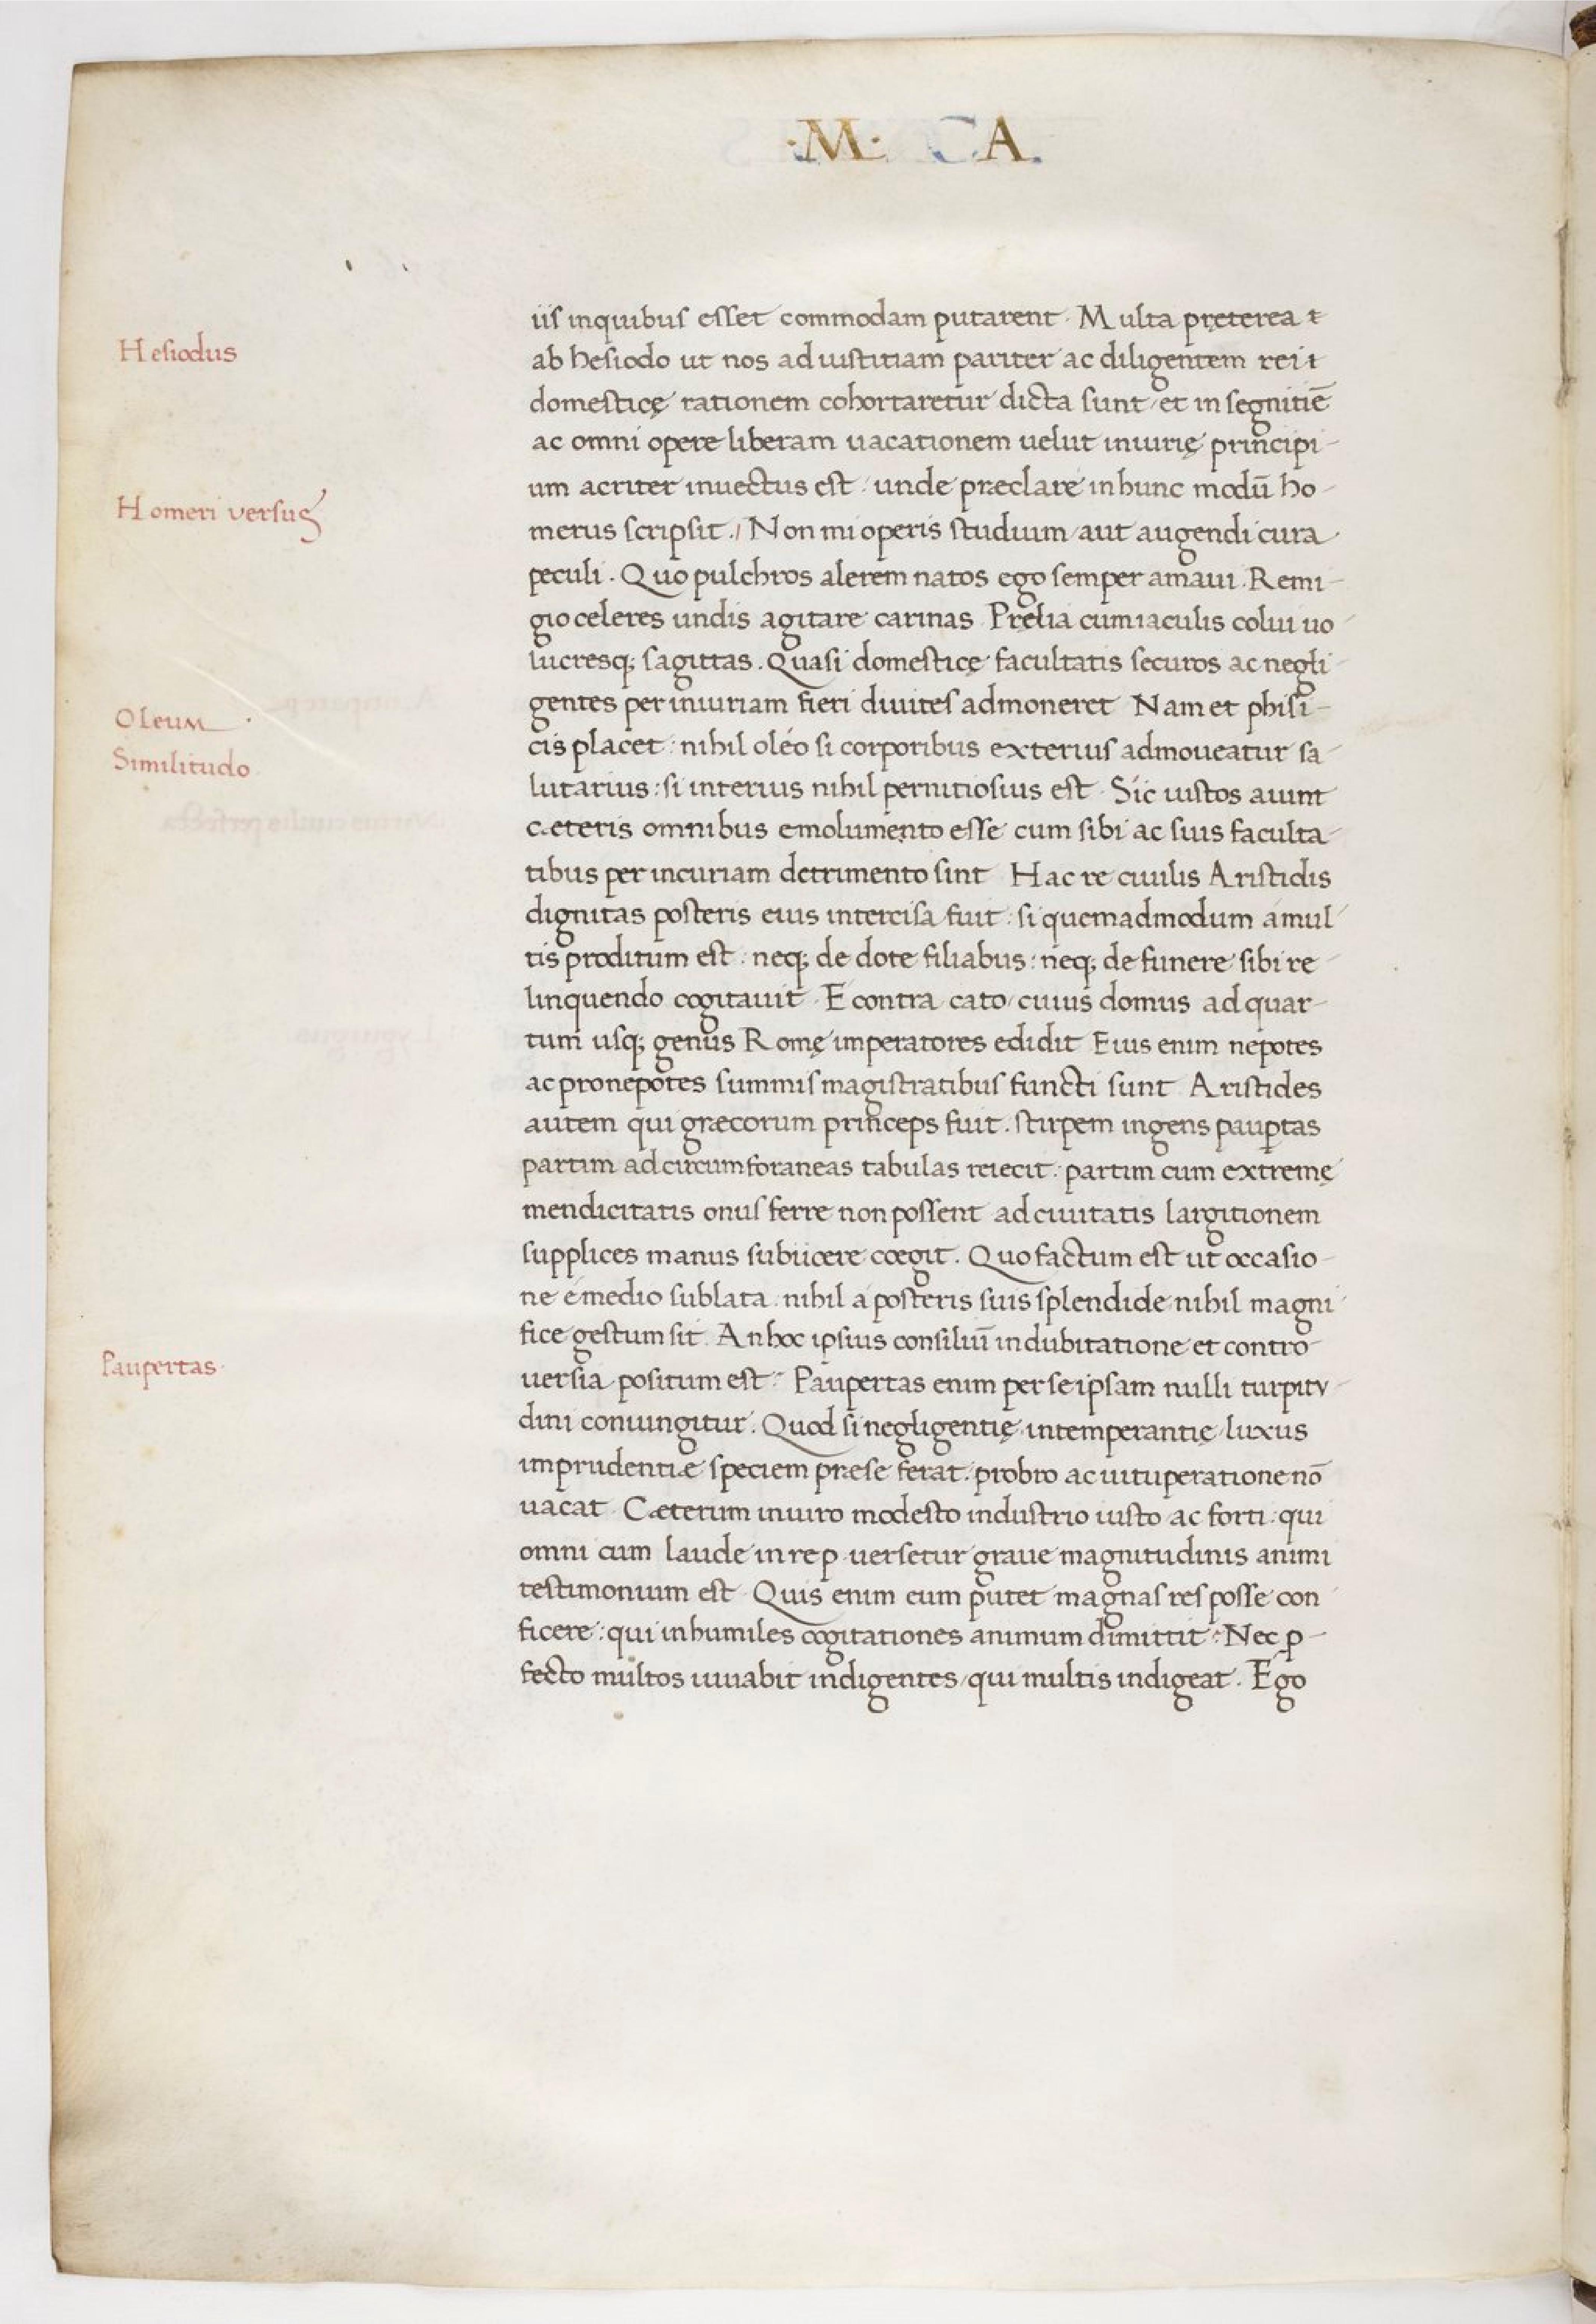 ·M· CA.
Hesiodus
Homeri versus
Oleum
Similitudo
Paupertas
iis inquibus esset commodam putarent. Multa pręterea &
ab hesiodo ut nos ad iustitiam pariter ac diligentem rei
domesticę rationem cohortaretur dicta sunt / et in segnitiē
ac omni opere liberam uacationem uelut iniurię principi-
um acriter inuectus est: unde præclare inhunc modū ho-
merus scripsit. / Non mi operis studium / aut augendi cura
peculi. Quo pulchros alerem natos ego semper amaui. Remi-
gio celeres undis agitare carinas. Pręlia cum iaculis colui uo-
lucresq; sagittas. Quasi domesticę facultatis securos ac negli-
gentes per iniuriam fieri diuites admoneret. Nam et phisi-
cis placet: nihil oleo si corporibus exterius admoueatur sa-
lutarius: si interius nihil pernitiosius est. Sic iustos aiunt
cæteris omnibus emolumento esse cum sibi ac suis faculta-
tibus per incuriam detrimento sint. Hac re ciuilis Aristidis
dignitas posteris eius intercisa fuit: si quemadmodum á mul-
tis proditum est: neq; de dote filiabus: neq; de funere sibi re-
linquendo cogitauit. E contra cato / cuius domus ad quar-
tum usq; genus Romę imperatores edidit. Eius enim nepotes
ac pronepotes summis magistratibus functi sunt. Aristides
autem qui græcorum princeps fuit. stirpem ingens paup̱tas
partim ad circumforaneas tabulas reiecit: partim cum extremę
mendicitatis onus ferre non possent ad ciuitatis largitionem
supplices manus subiicere coegit. Quo factum est ut occasio-
ne é medio sublata: nihil a posteris suis splendide nihil magni-
fice gestum sit. An hoc ipsius consiliū in dubitatione et contro-
uersia positum est: Paupertas enim per se ipsam nulli turpitu-
dini coniungitur. Quod si negligentię intemperantię / luxus
imprudentiæ speciem præ se ferat: probro ac uituperatione nō
uacat. Cæterum in uiro modesto industrio iusto ac forti: qui
omni cum laude in re p. uersetur graue magnitudinis animi
testimonium est. Quis enim eum putet magnas res posse con-
ficere: qui in humiles cogitationes animum dimittit: Nec ꝓ-
fecto multos iuuabit indigentes / qui multis indigeat. Ego